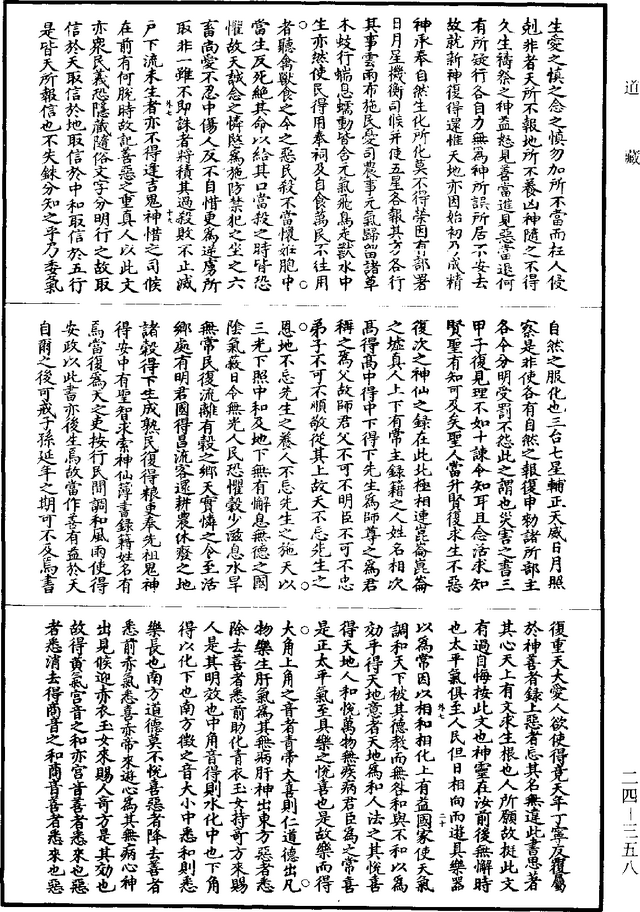 道藏
生愛之慎之念之慎勿加所不當而枉人侵
剋非者天所不報地所不養凶神隨之不得
久生禱祭之神益怒見善當進見惡當退何
有所疑行各自力無為神所誤所居不安去
故就新神復得還惟天地亦因始初乃成精
神承奉自然生化所化莫不得榮因有部署
日月星機衡司候并使五星各報其方各行
其事雲雨布施民憂司農事元氣歸留諸草
木蚑行喘息蠕動皆含元氣飛鳥走獸水中
生亦然使民得用奉祠及自食萬民不往用
者聽禽獸食之今之惡民殺不當懷妊胞中
當生反死絕其命以給其口當殺之時皆恐
懼故天誡念之憐愍為施防禁犯之坐之六
畜尚愛不忍中傷人反不自惜更為逆虜所
取非一雖不即誅者將積其過殺敗不止滅
戶下流未生者亦不得逢吉鬼神惜之司候
在前有何脫時故記善惡之重真人以此文
亦衆民義恐隱藏隨俗文字分明行之故取
信於天取信於地取信於中和取信於五行
是皆天所報信也不失銖分知之乎乃委氣
自然之服化也三台七星輔正天威日月照
察是非使各有自然之報復申勑諸所部主
各令分明受罰不怨此之謂也災害之書三
甲子復見理不如十諫令知耳且念活求知
賢聖有知可及矣聖人當升賢復求生不惡
復次之神仙之錄在此北極相連崑崙崑崙
之墟真人上下有常主錄籍之人姓名相次
高得高中得中下得下先生為師尊之為君
稱之為父故師君父不可不明臣不可不忠
弟子不可不順敬從其上故天不忘先生之
恩地不忘先生之養人不忘先生之施天以
三光下照中和及地下無有懈息無德之國
陰氣蔽日令無光人民恐懼穀少滋息水旱
無常民復流離有穀之鄉天實憐之令至活
鄉處有明君國得昌流客還耕農休廢之地
諸穀得下生成熟民復得粮更奉先祖鬼神
得安中有聖智求索神仙簿書錄籍姓名有
焉當復為天之吏按行民間調和風雨使得
安政以此書亦後生焉故當作善有益於天
自爾之後可戒子孫延年之期可不及焉書
復重天大愛人欲使得竟天年丁寧反覆屬
於神善者錄上惡者忘其名無違此書思著
其心天上有文求生根也人所願故挺此文
有過自悔按此文也神靈在汝前後無懈時
也太平氣俱至人民但日相向而遊具樂器
以為常因以相和相化上有益國家使天氣
調和天下被其德教而無咎和與不和以為
効乎得天地意者天地為和人法之其悅喜
得天地人和悅萬物無疾病君臣為之常喜
是正太平氣至具樂之悅喜也是故樂而得
大角上角之音者青帝大喜則仁道德出凡
物樂生肝氣為其無病肝神出東方惡者悉
除去善者悉前助化青衣玉女持奇方來賜
人是其明效也中角音得則水化中也下角
得以化下也南方徵之音大小中悉和則悉
樂長也南方道德莫不悅喜惡者降去善者
悉前赤氣悉喜赤帝來遊心為其無病心神
出見候迎赤衣玉女來賜人奇方是其効也
故得黃氣宮音之和亦宮音善者悉來也惡
者悉消去得商音之和商音善者悉來也惡
外七
十九
外七
二十
二四—三五八